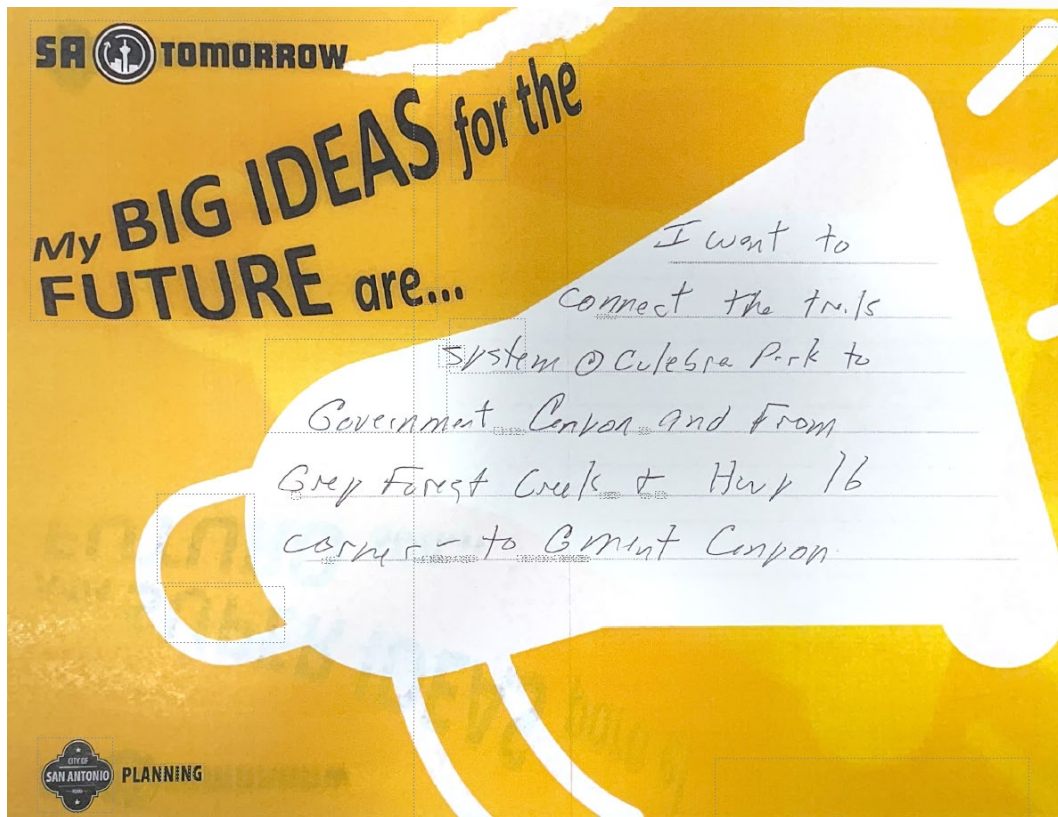 SA TOMORROW
My BIG IDEAS for the
FUTURE are...
I want to
connect the trails
system @ Culebra Park to
Government Canyon and From
Grey Forest Creek & Hwy 16
corner - to Gment Canyon
CITY OF
SAN ANTONIO
PLANNING